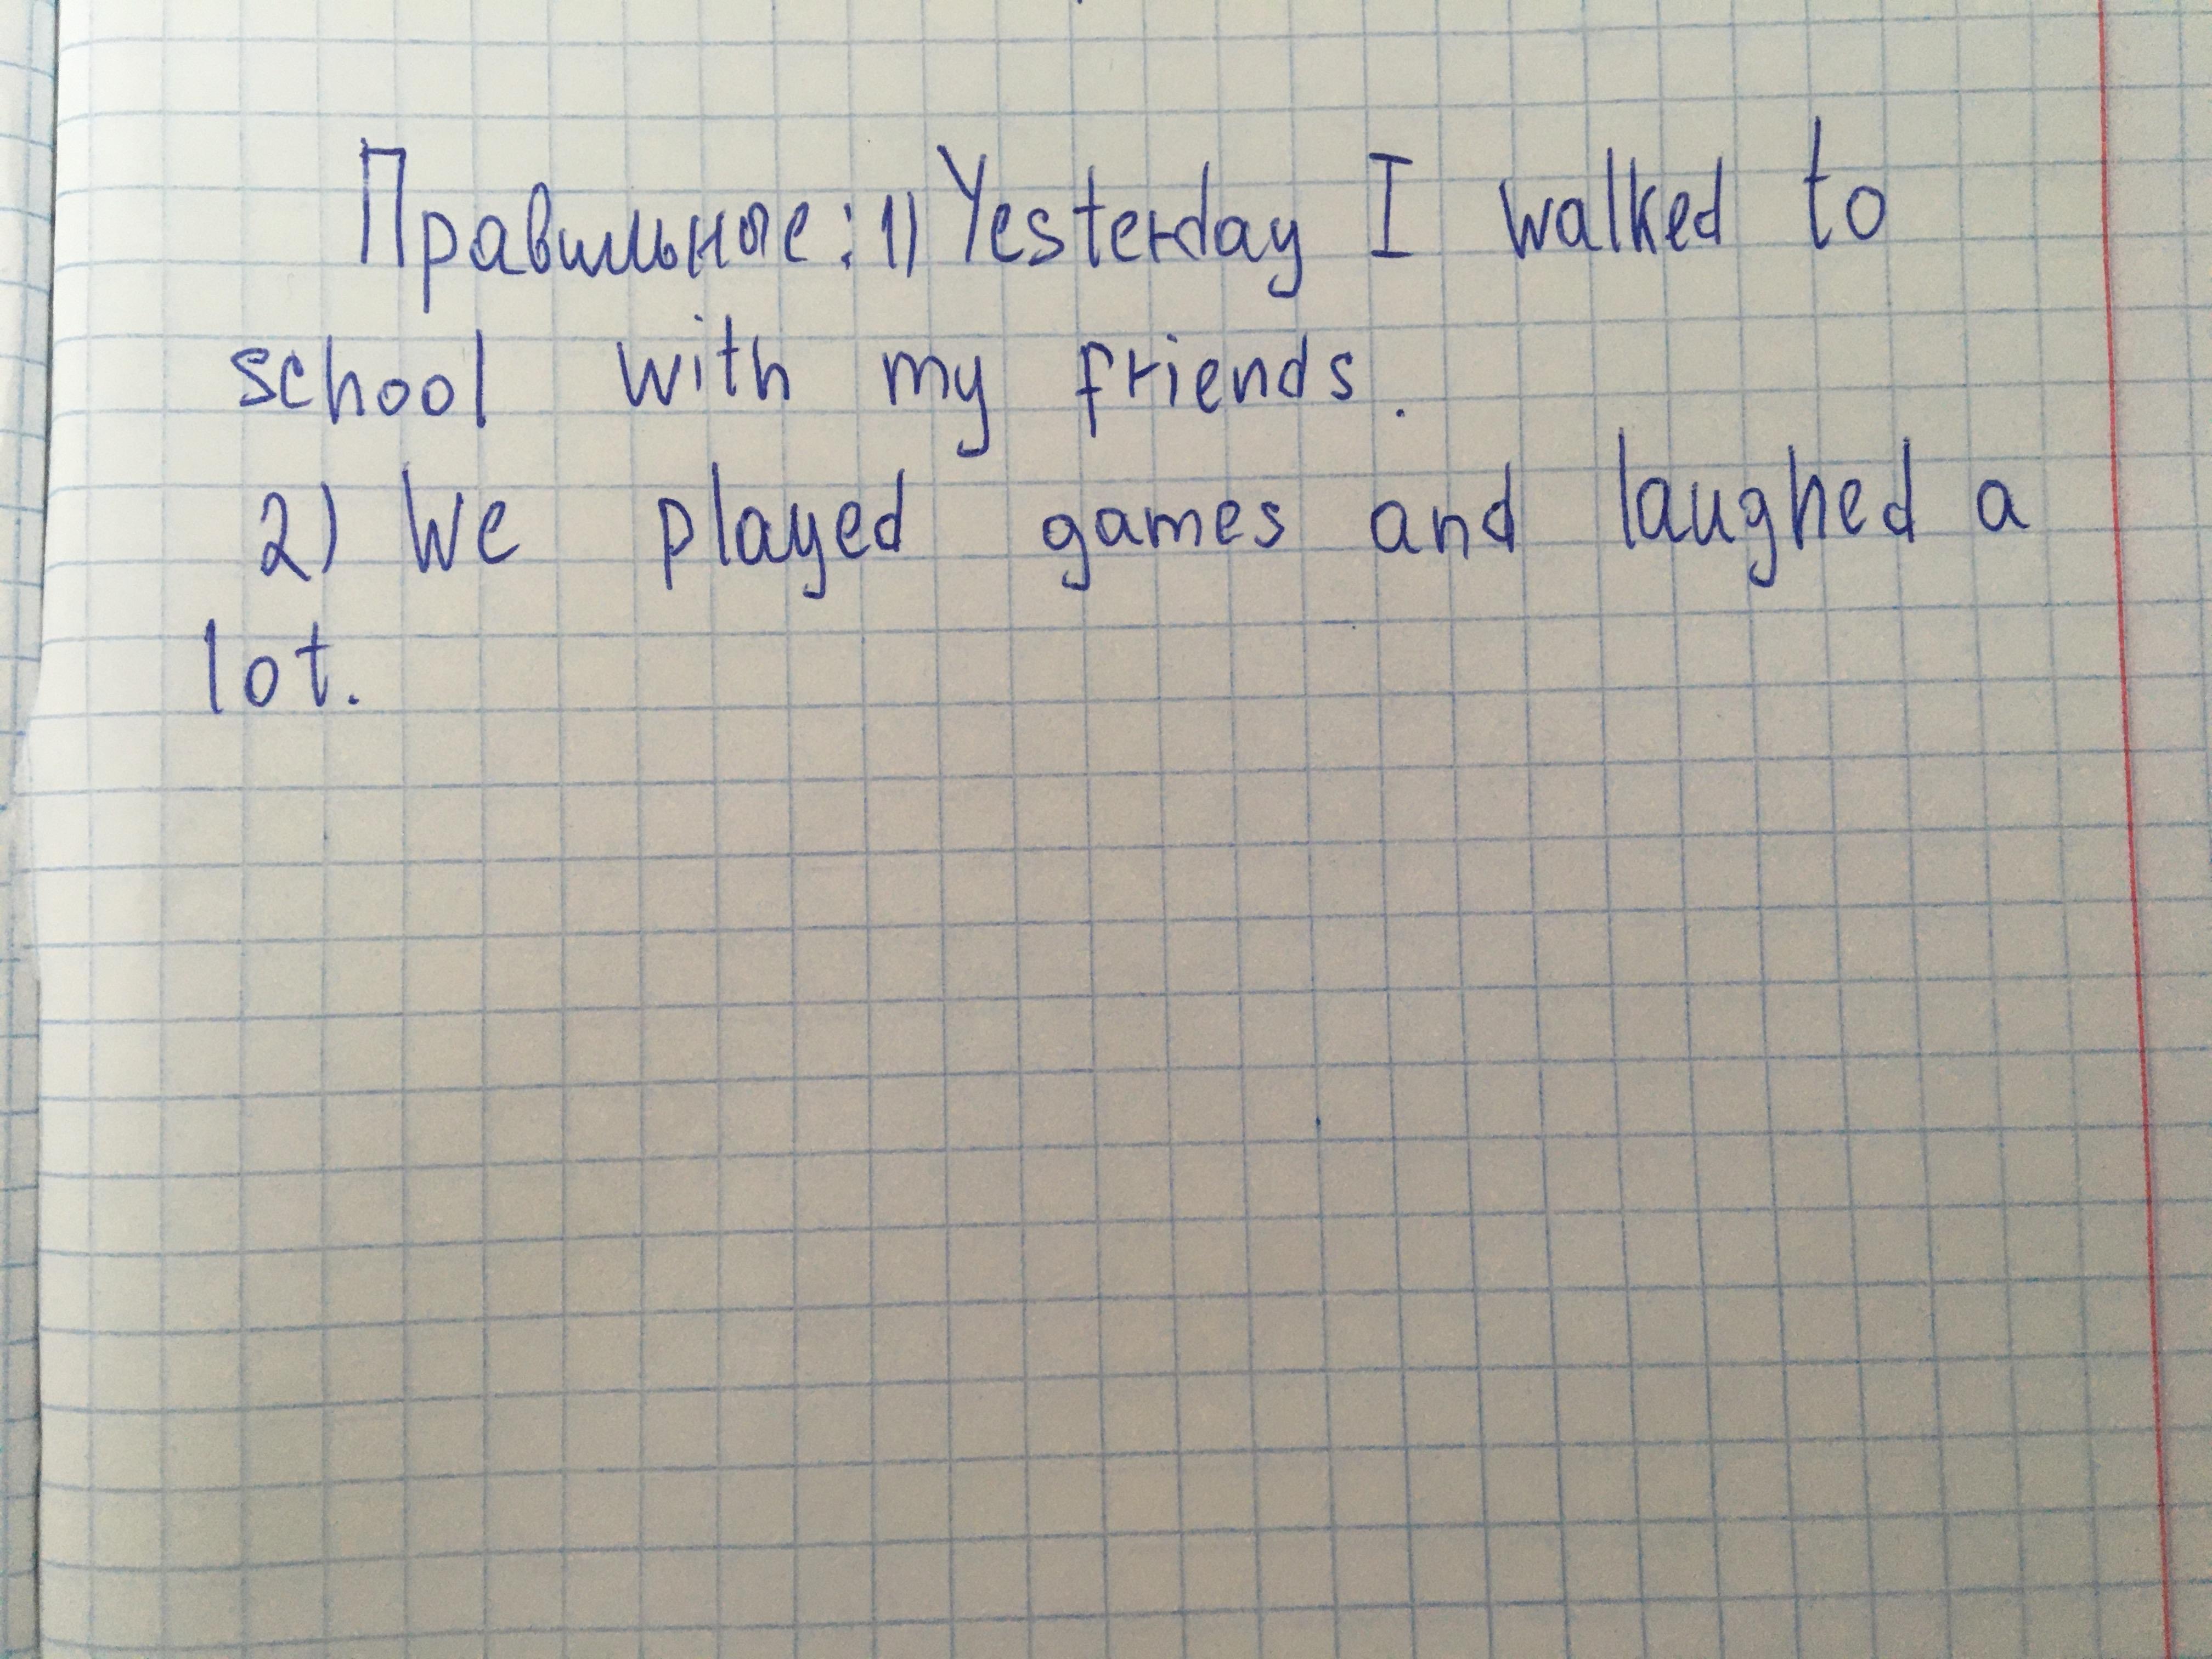 Правильные: 1) Yesterday I walked to
school with my friends.
2) We played games and laughed a
lot.